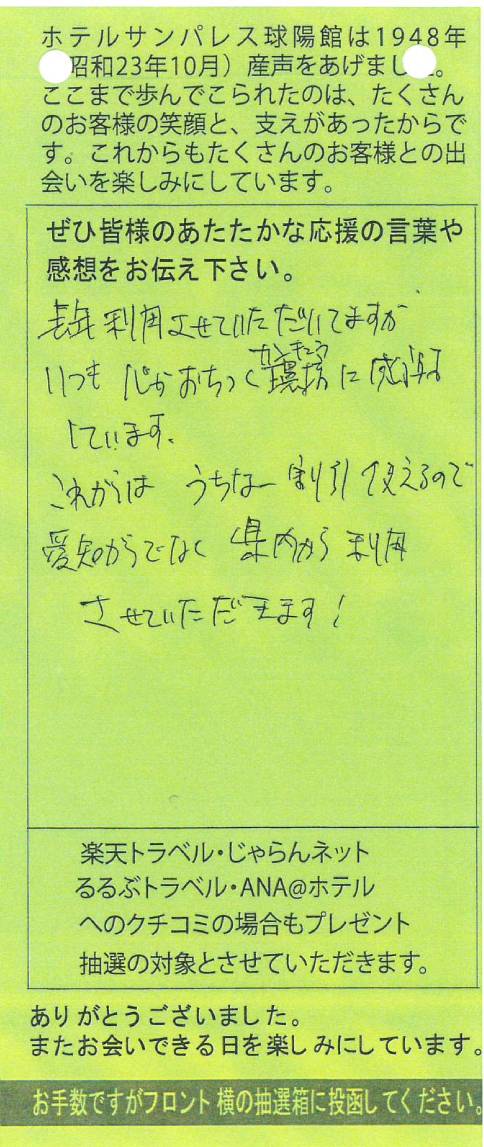 ホテルサンパレス球陽館は1948年
昭和23年10月）産声をあげました。
ここまで歩んでこられたのは、たくさん
のお客様の笑顔と、支えがあったからで
す。これからもたくさんのお客様との出
会いを楽しみにしています。
ぜひ皆様のあたたかな応援の言葉や
感想をお伝え下さい。
長年利用させていただいてますが
カンキョウ
いつも 心がおちつく環境に感謝
しています。
これからは うちなー割引使えるので
愛知からでなく 県内から利用
させていただきます！
楽天トラベル・じゃらんネット
るるぶトラベル・ANA@ホテル
へのクチコミの場合もプレゼント
抽選の対象とさせていただきます。
ありがとうございました。
またお会いできる日を楽しみにしています。
お手数ですがフロント横の抽選箱に投函してください。